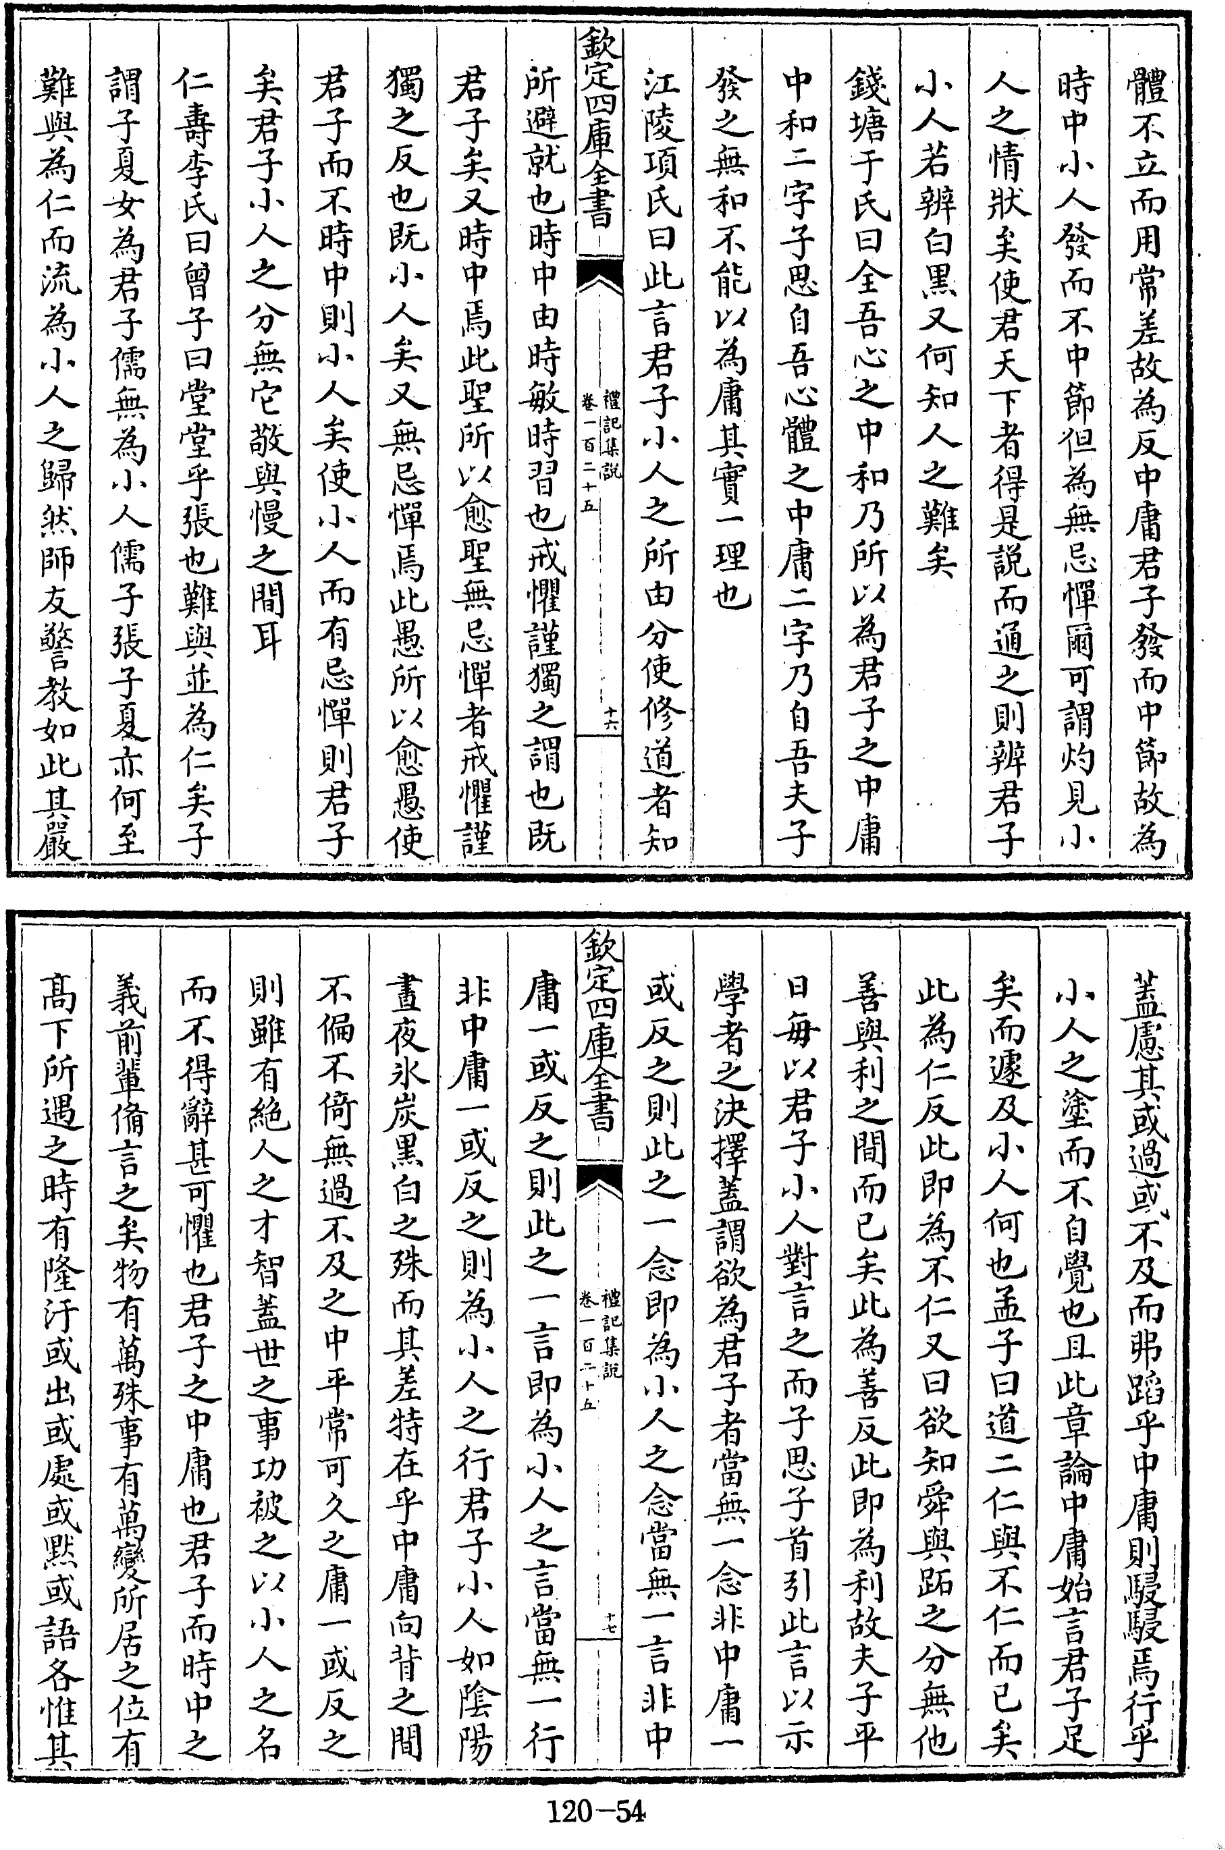 體不立而用常差故為反中庸君子發而中節故為
時中小人發而不中節但為無忌憚爾可謂灼見小
人之情狀矣使君天下者得是説而通之則辨君子
小人若辨白黑又何知人之難矣
錢塘于氏曰全吾心之中和乃所以為君子之中庸
中和二字子思自吾心體之中庸二字乃自吾夫子
發之無和不能以為庸其實一理也
江陵項氏曰此言君子小人之所由分使修道者知
欽定四庫全書
禮記集說
卷一百二十五
十六
所避就也時中由時敏時習也戒懼謹獨之謂也既
君子矣又時中焉此聖所以愈聖無忌憚者戒懼謹
獨之反也既小人矣又無忌憚焉此愚所以愈愚使
君子而不時中則小人矣使小人而有忌憚則君子
矣君子小人之分無它敬與慢之間耳
仁壽李氏曰曾子曰堂堂乎張也難與並為仁矣子
謂子夏女為君子儒無為小人儒子張子夏亦何至
難與為仁而流為小人之歸然師友警教如此其嚴
蓋慮其或過或不及而弗蹈乎中庸則駸駸焉行乎
小人之塗而不自覺也且此章論中庸始言君子足
矣而遽及小人何也孟子曰道二仁與不仁而已矣
此為仁反此即為不仁又曰欲知舜與跖之分無他
善與利之間而已矣此為善反此即為利故夫子平
日每以君子小人對言之而子思子首引此言以示
學者之決擇蓋謂欲為君子者當無一念非中庸一
或反之則此之一念即為小人之念當無一言非中
欽定四庫全書
禮記集說
卷一百二十五
十七
庸一或反之則此之一言即為小人之言當無一行
非中庸一或反之則為小人之行君子小人如陰陽
晝夜氷炭黑白之殊而其差特在乎中庸向背之間
不偏不倚無過不及之中平常可久之庸一或反之
則雖有絶人之才智蓋世之事功被之以小人之名
而不得辭甚可懼也君子之中庸也君子而時中之
義前輩備言之矣物有萬殊事有萬變所居之位有
高下所遇之時有隆汙或出或處或黙或語各惟其
120-54